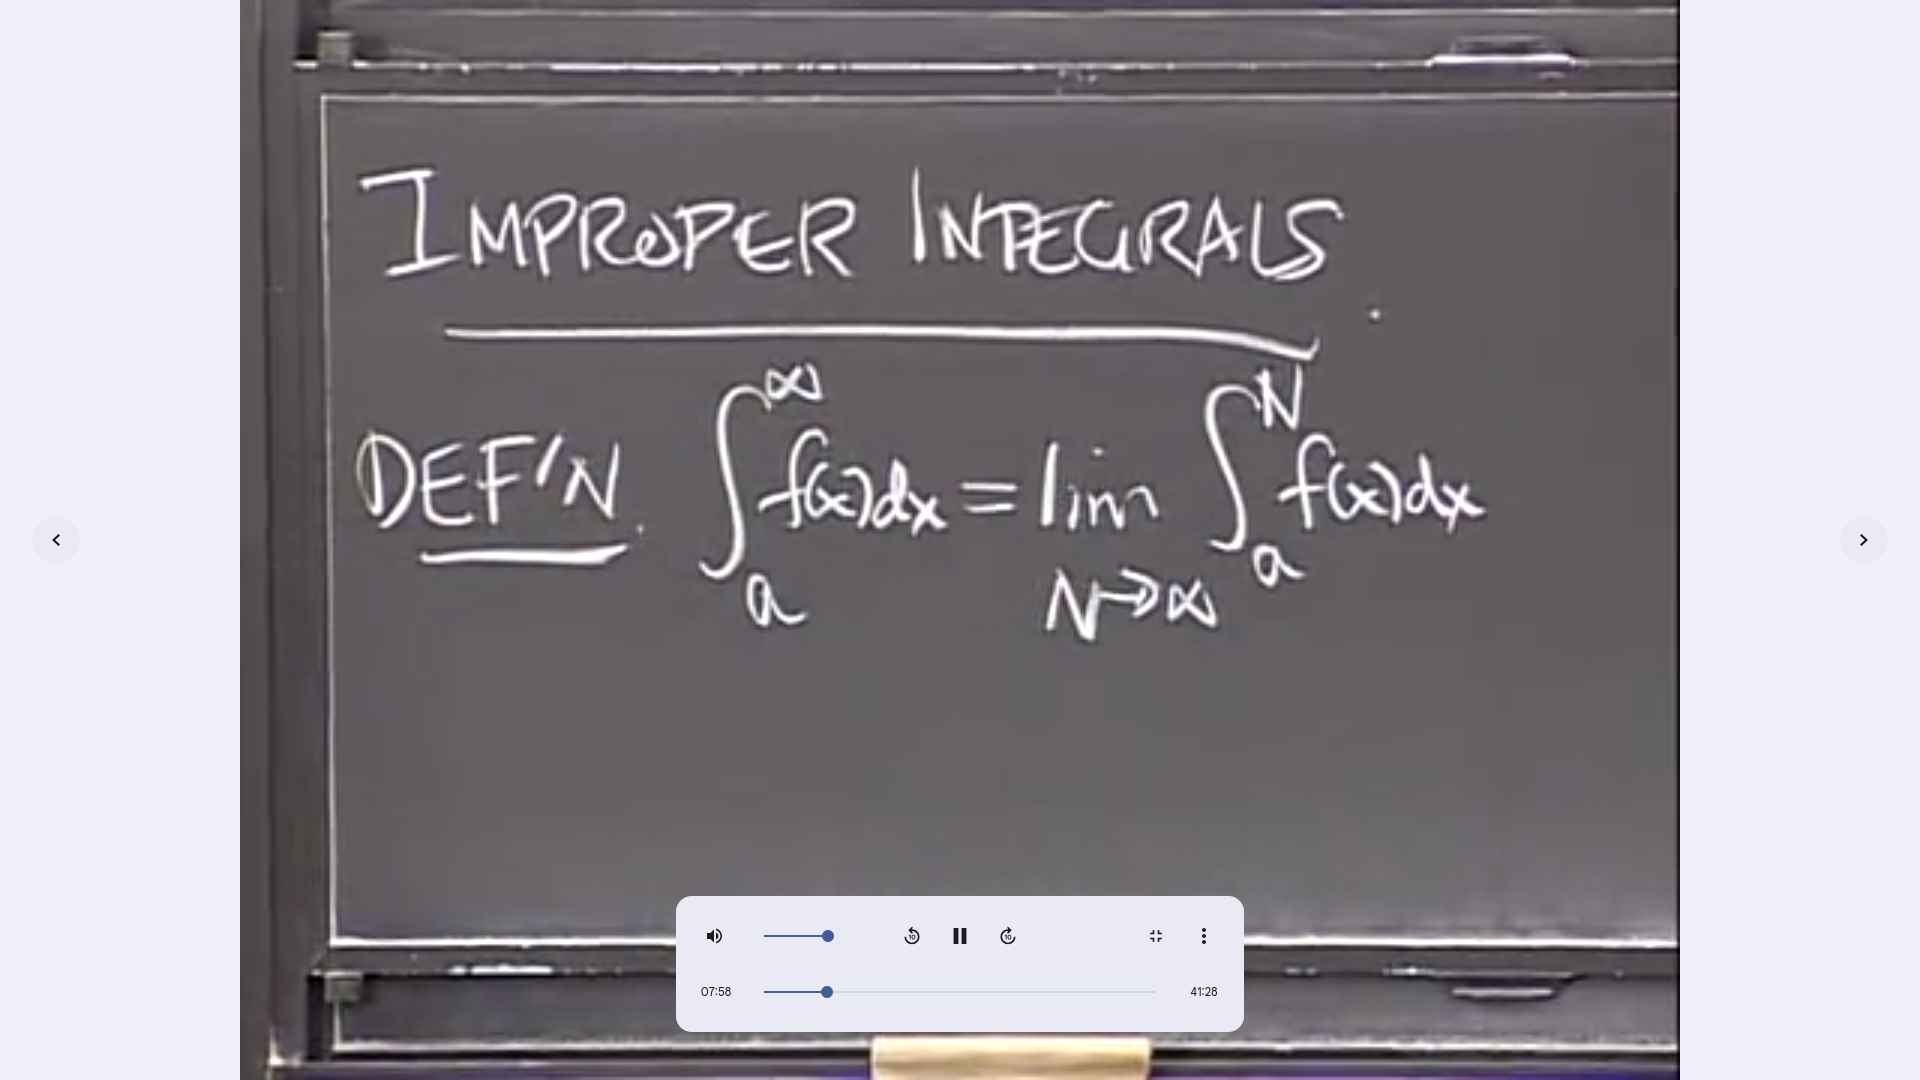 IMPROPER INTEGRALS
DEF'N ∫_a^∞ f(x)dx = lim_{N→∞} ∫_a^N f(x)dx
10 10
07:58 41:28